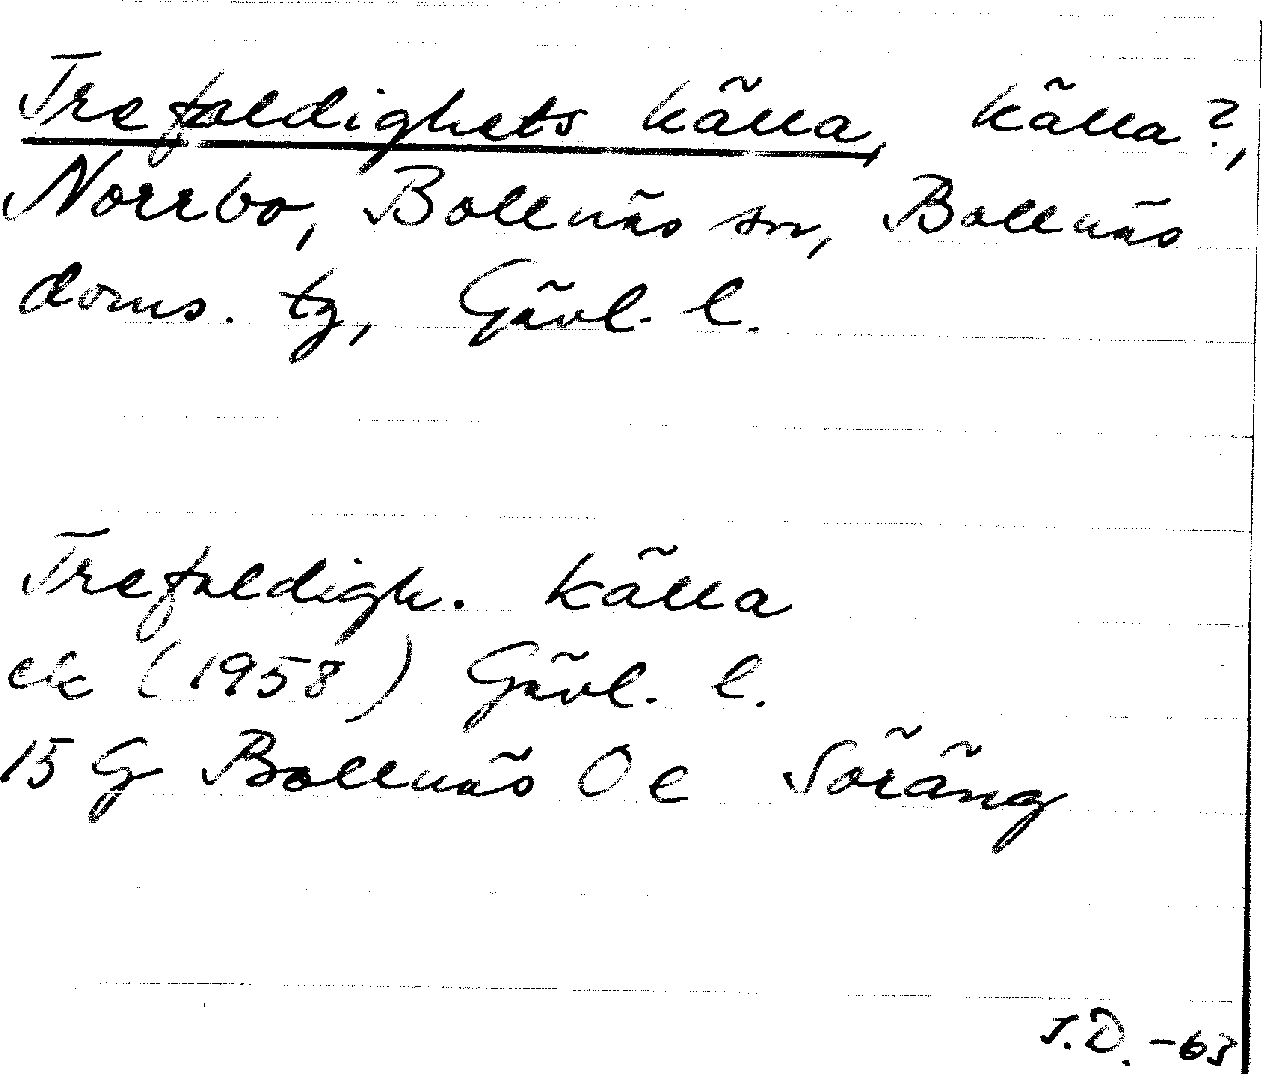 Trefaldighets källa, källa?,
Norrbo, Bollnäs sn, Bollnäs
doms. tg, Gävl. l.
Trefaldigh. källa
ek (1958) Gävl. l.
15 G Bollnäs O e Söräng
J.D. -63